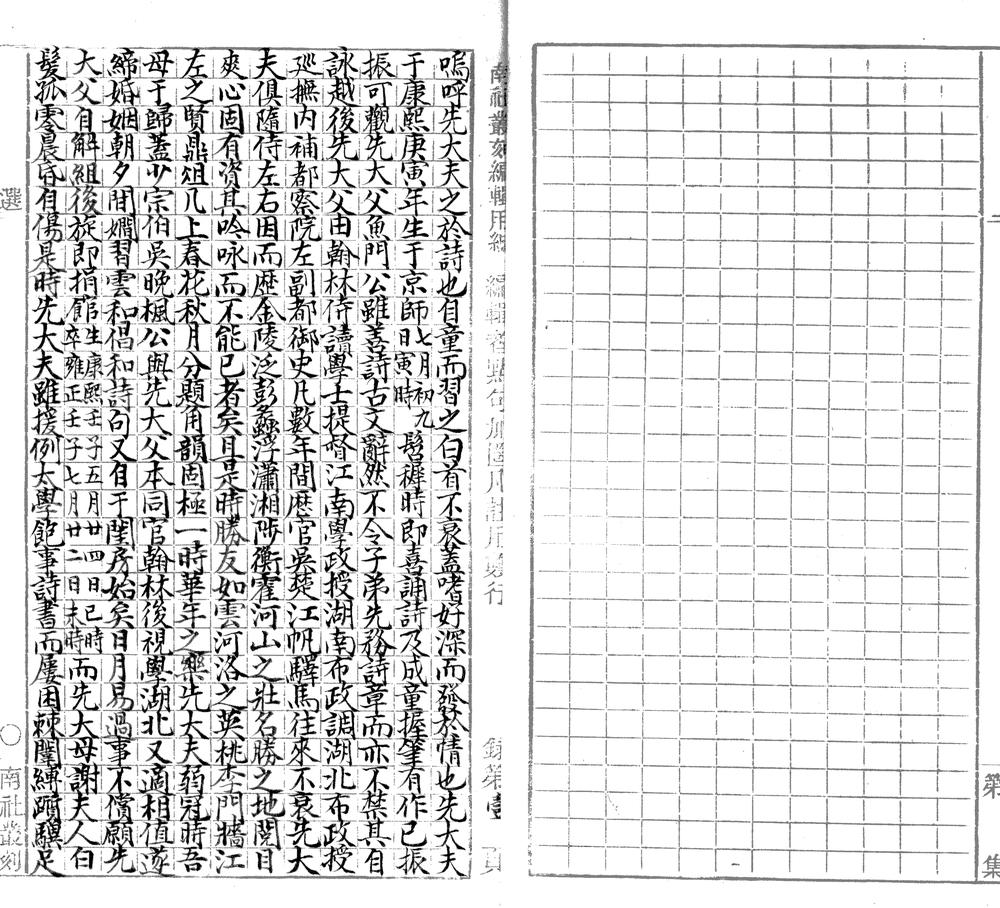 二
第
集
南社叢刻編輯用紙 編輯者點句加圈用註用發行
錄第壹
頁
嗚呼先大夫之於詩也自童而習之白首不衰蓋嗜好深而發於情也先大夫
于康熙庚寅年生于京師七月初九日寅時髫穉時即喜誦詩及成童握筆有作已振
振可觀先大父魚門公雖善詩古文辭然不令子弟先務詩章而亦不禁其自
詠越後先大父由翰林侍讀學士提督江南學政授湖南布政調湖北布政授
巡撫內補都察院左副都御史凡數年間歷官吳楚江帆驛馬往來不衰先大
夫俱隨侍左右因而歷金陵泛彭蠡浮瀟湘陟衡霍河山之壯名勝之地閱目
爽心固有資其吟咏而不能已者矣且是時勝友如雲河洛之英桃李門牆江
左之賢鼎俎几上春花秋月分題角韻固極一時華年之樂先大夫弱冠時吾
母于歸蓋少宗伯吳晚楓公與先大父本同官翰林後視學湖北又適相值遂
締婚姻朝夕閒嫺習雲和倡和詩句又自于閨房始矣日月易過事不償願先
大父自解組後旋即捐館生康熙壬子五月廿四日巳時卒雍正壬子七月廿二日未時而先大母謝夫人白
髮孤零晨昏自傷是時先大夫雖援例太學飽事詩書而屢困棘闈縛躓驥足
選
○
南社叢刻